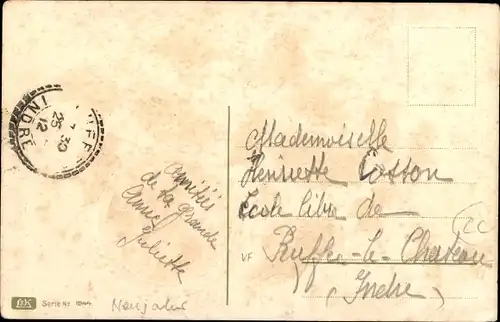 RUFFE
INDRE
26
12
30
Amitiés
de ta grande
Amie
Juliette
Mademoiselle
Henriette Cotton
Ecole libre de
Ruffec-le-Chateau
Indre
VF
Serie Nr.
Neujahr